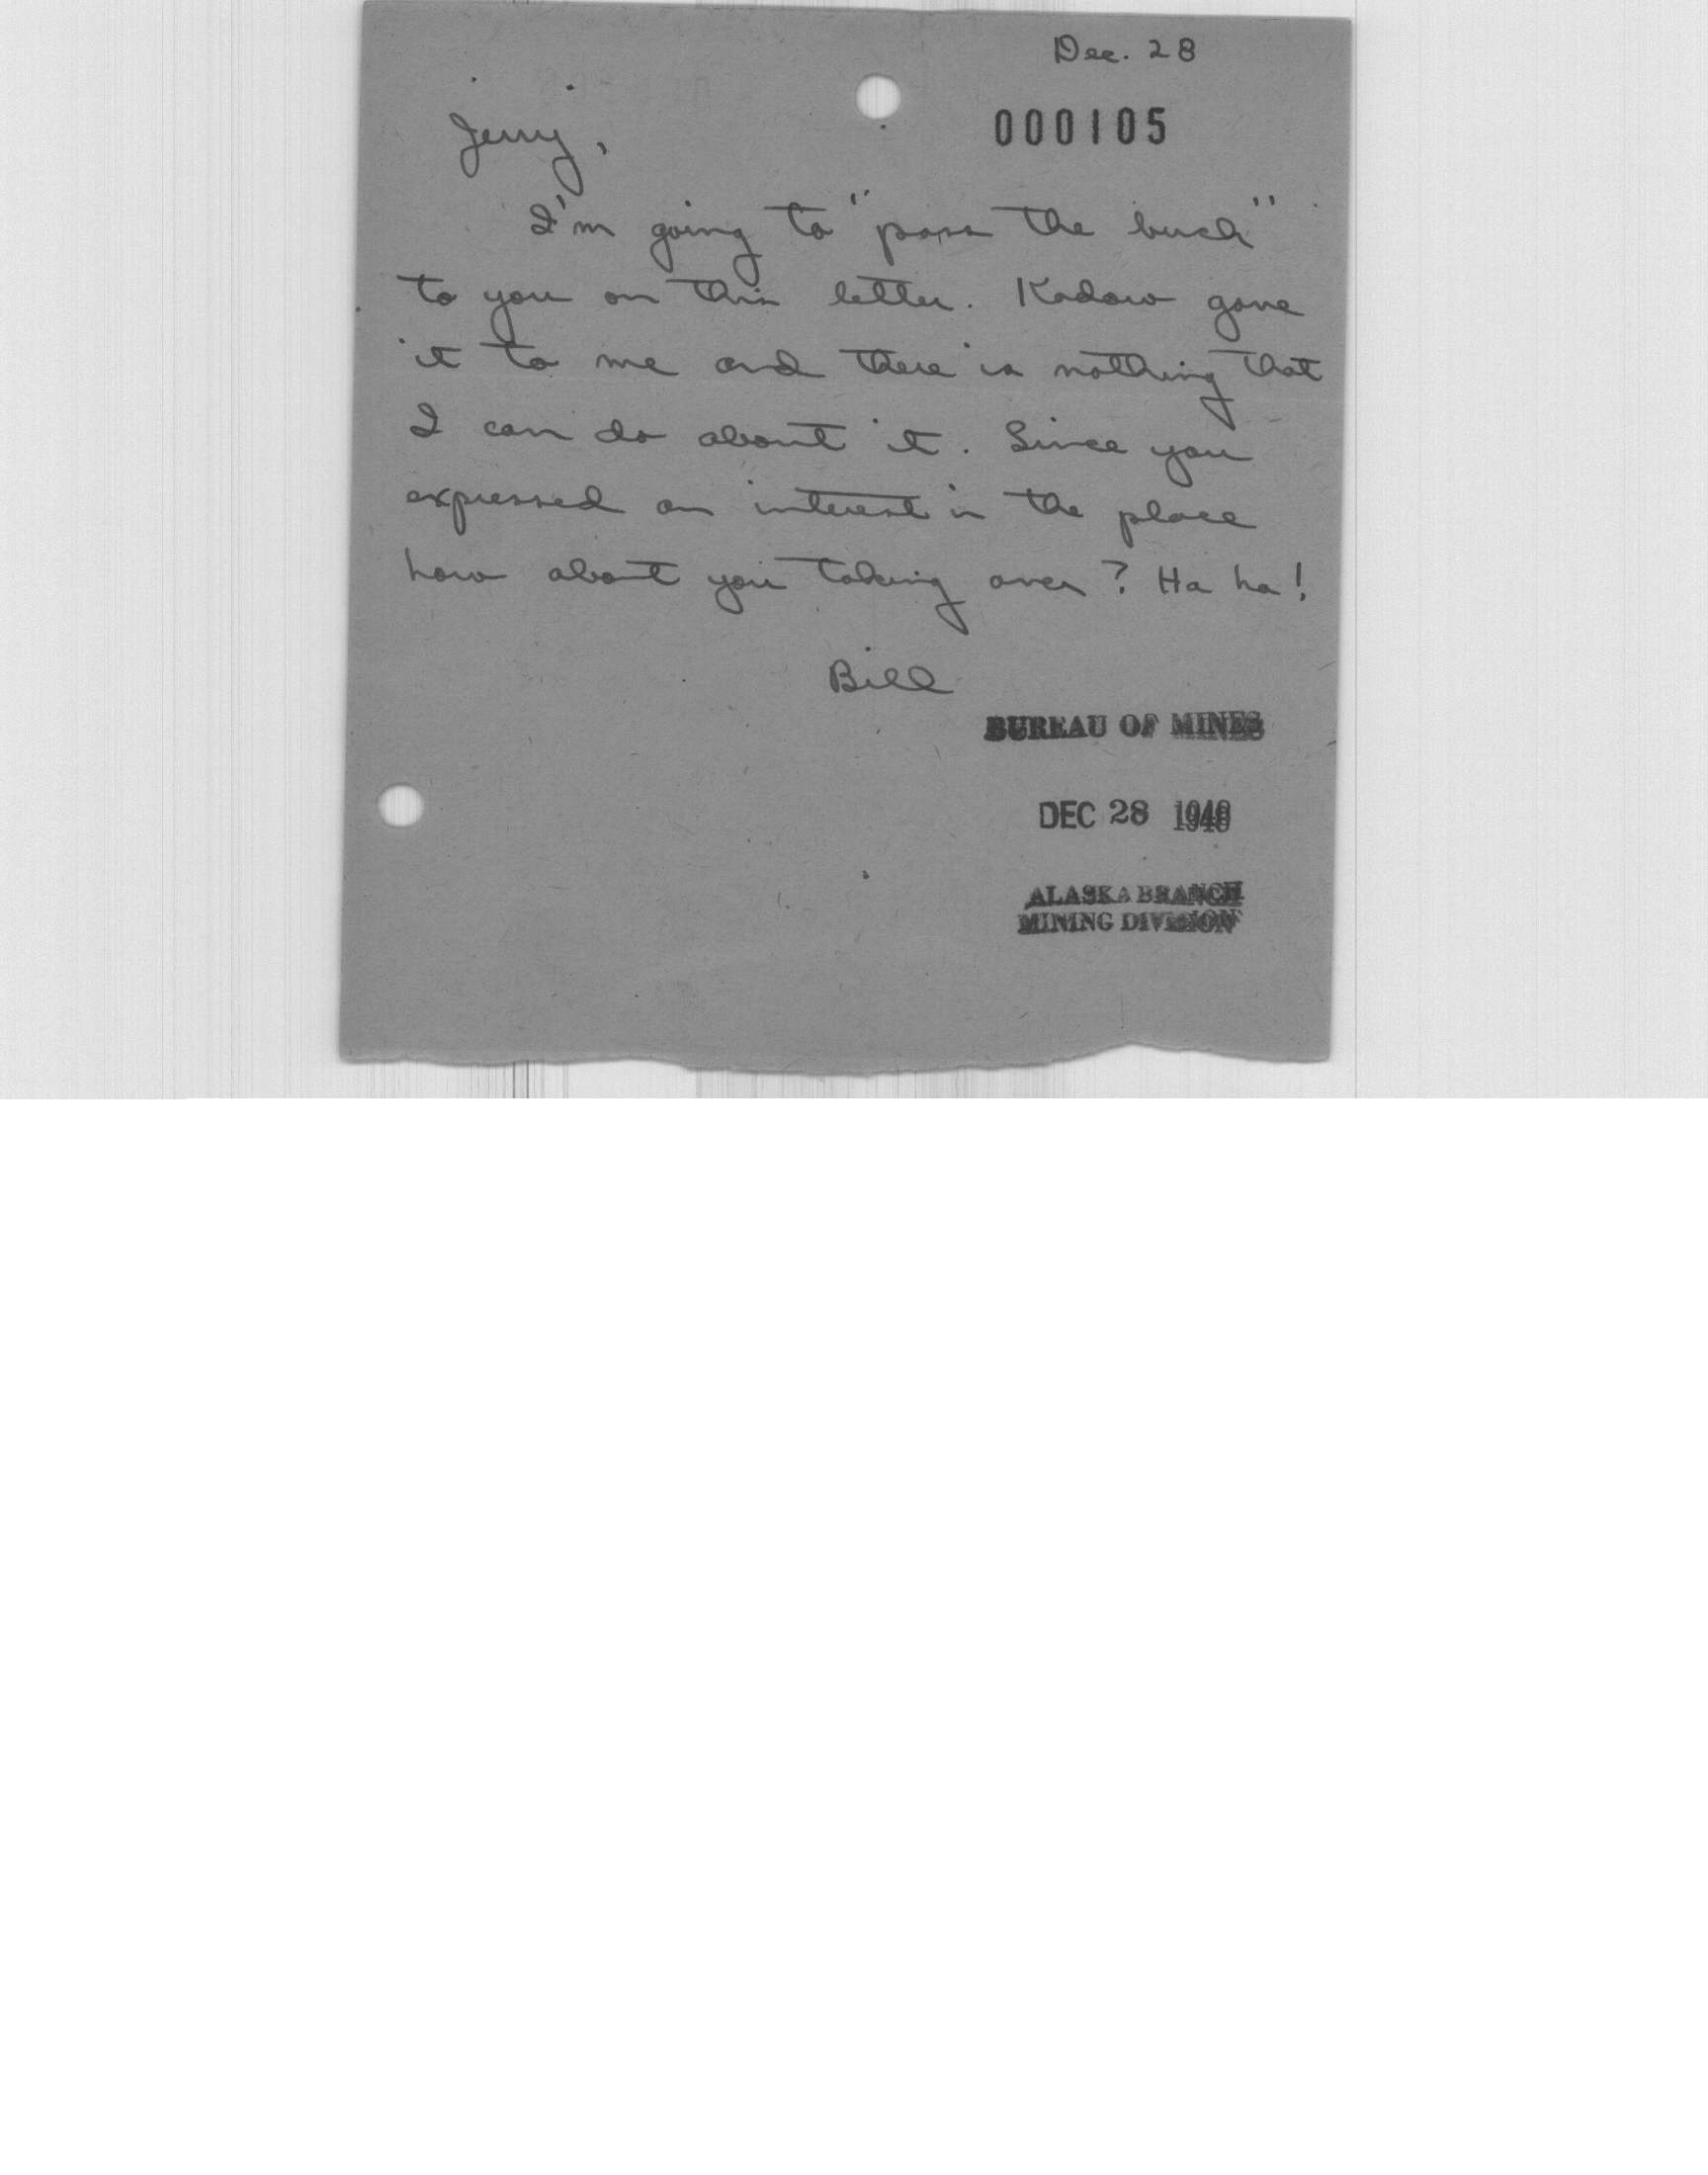 Dec. 28
000105
Jerry,
I'm going to "pass the buck"
to you on this letter. Kadow gave
it to me and there is nothing that
I can do about it. Since you
expressed an interest in the place
how about you taking over? Ha ha!
Bill
BUREAU OF MINES
DEC 28 1948
ALASKA BRANCH
MINING DIVISION